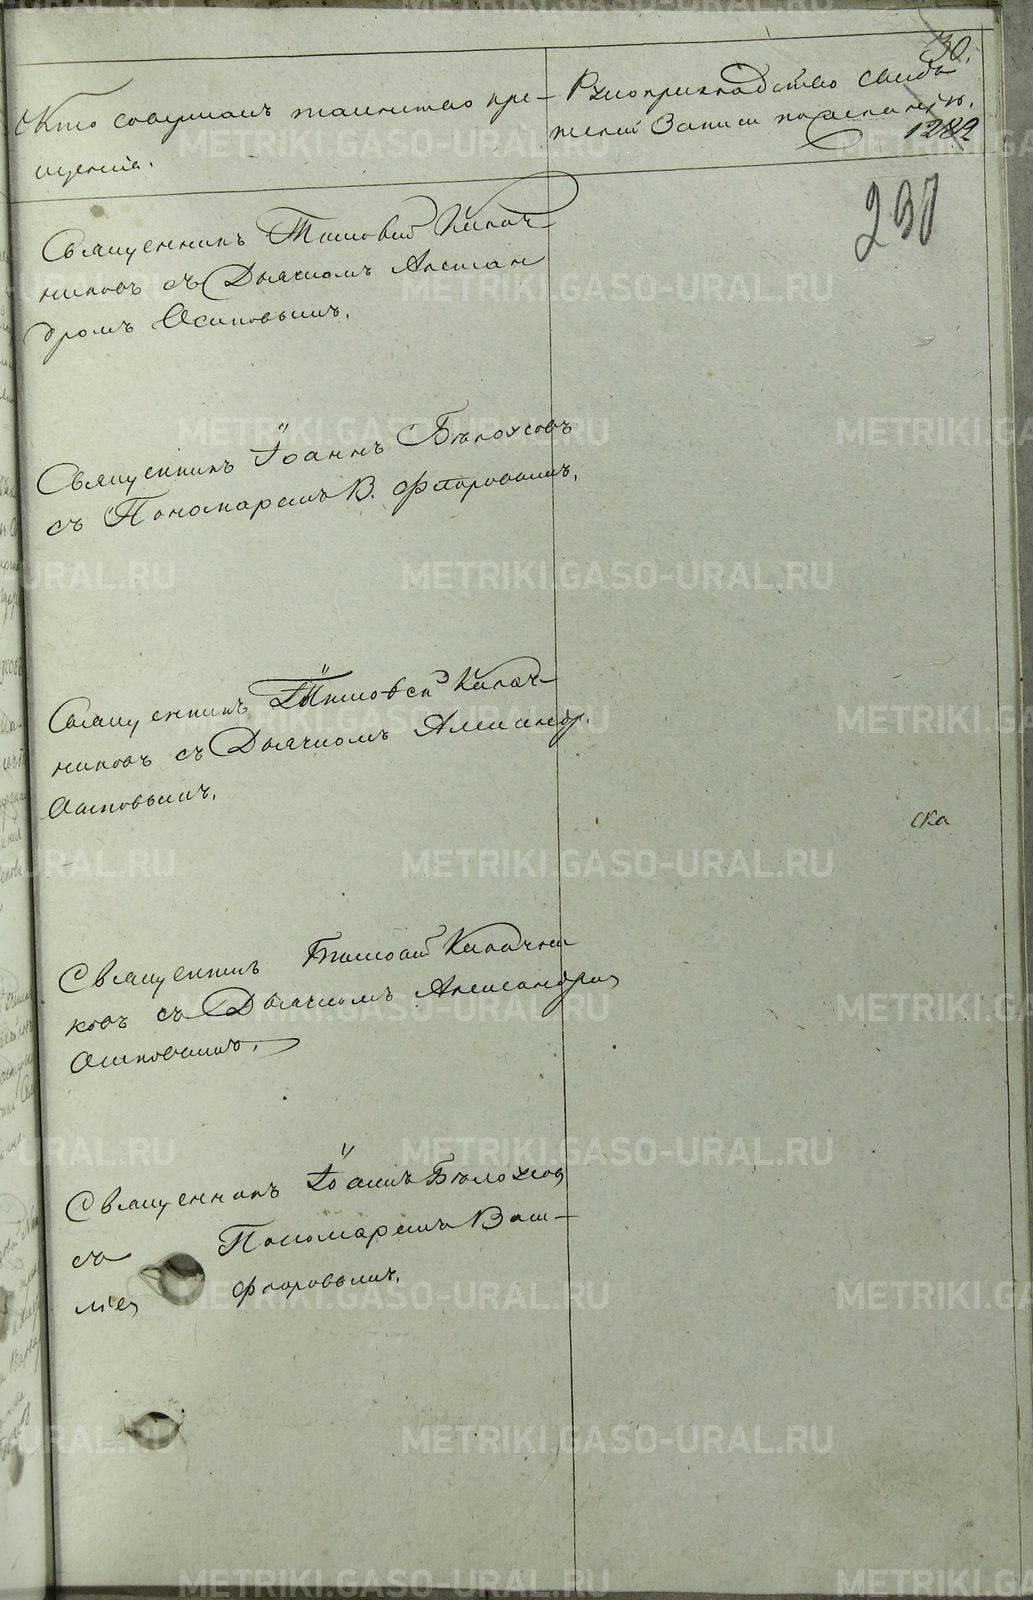 30.
Кто совершалъ таинство кре-
щенія.
Рукоприкладство свидѣ
телей записи по желанію.
1282
230
Священникъ Тимовей Калач
никовъ съ Дьячкомъ Алексан
дромъ Осиповымъ.
Священникъ Іоаннъ Бѣлоусовъ
съ Пономаремъ В. Флоровымъ.
Священникъ Тимовей Калач-
никовъ съ Дьячкомъ Александр.
Осиповымъ.
ска
Священникъ Тимовей Калачни
ковъ съ Дьячкомъ Александром
Осиповымъ.
Священникъ Іоаннъ Бѣлоусов
съ Пономаремъ Васи-
ліем Флоровымъ.
METRIKI.GASO-URAL.RU